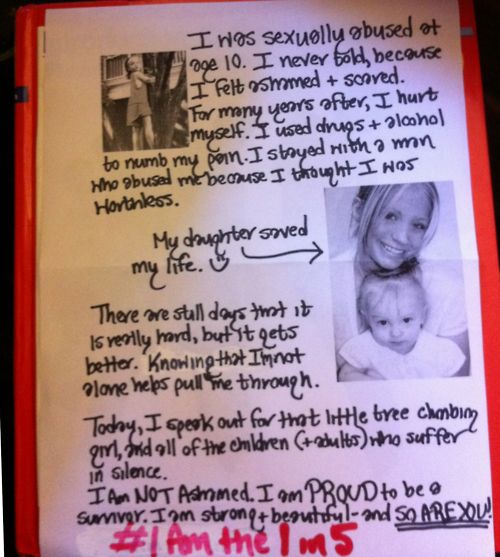 I was sexually abused at
age 10. I never told, because
I felt ashamed + scared.
For many years after, I hurt
myself. I used drugs + alcohol
to numb my pain. I stayed with a man
who abused me because I thought I was
worthless.
My daughter saved
my life.
There are still days that it
is really hard, but it gets
better. Knowing that I'm not
alone helps pull me through.
Today, I speak out for that little tree climbing
girl, and all of the children (+ adults) who suffer
in silence.
I Am NOT Ashamed. I am PROUD to be a
survivor. I am strong + beautiful - and SO ARE YOU!
#I Am the 1 in 5